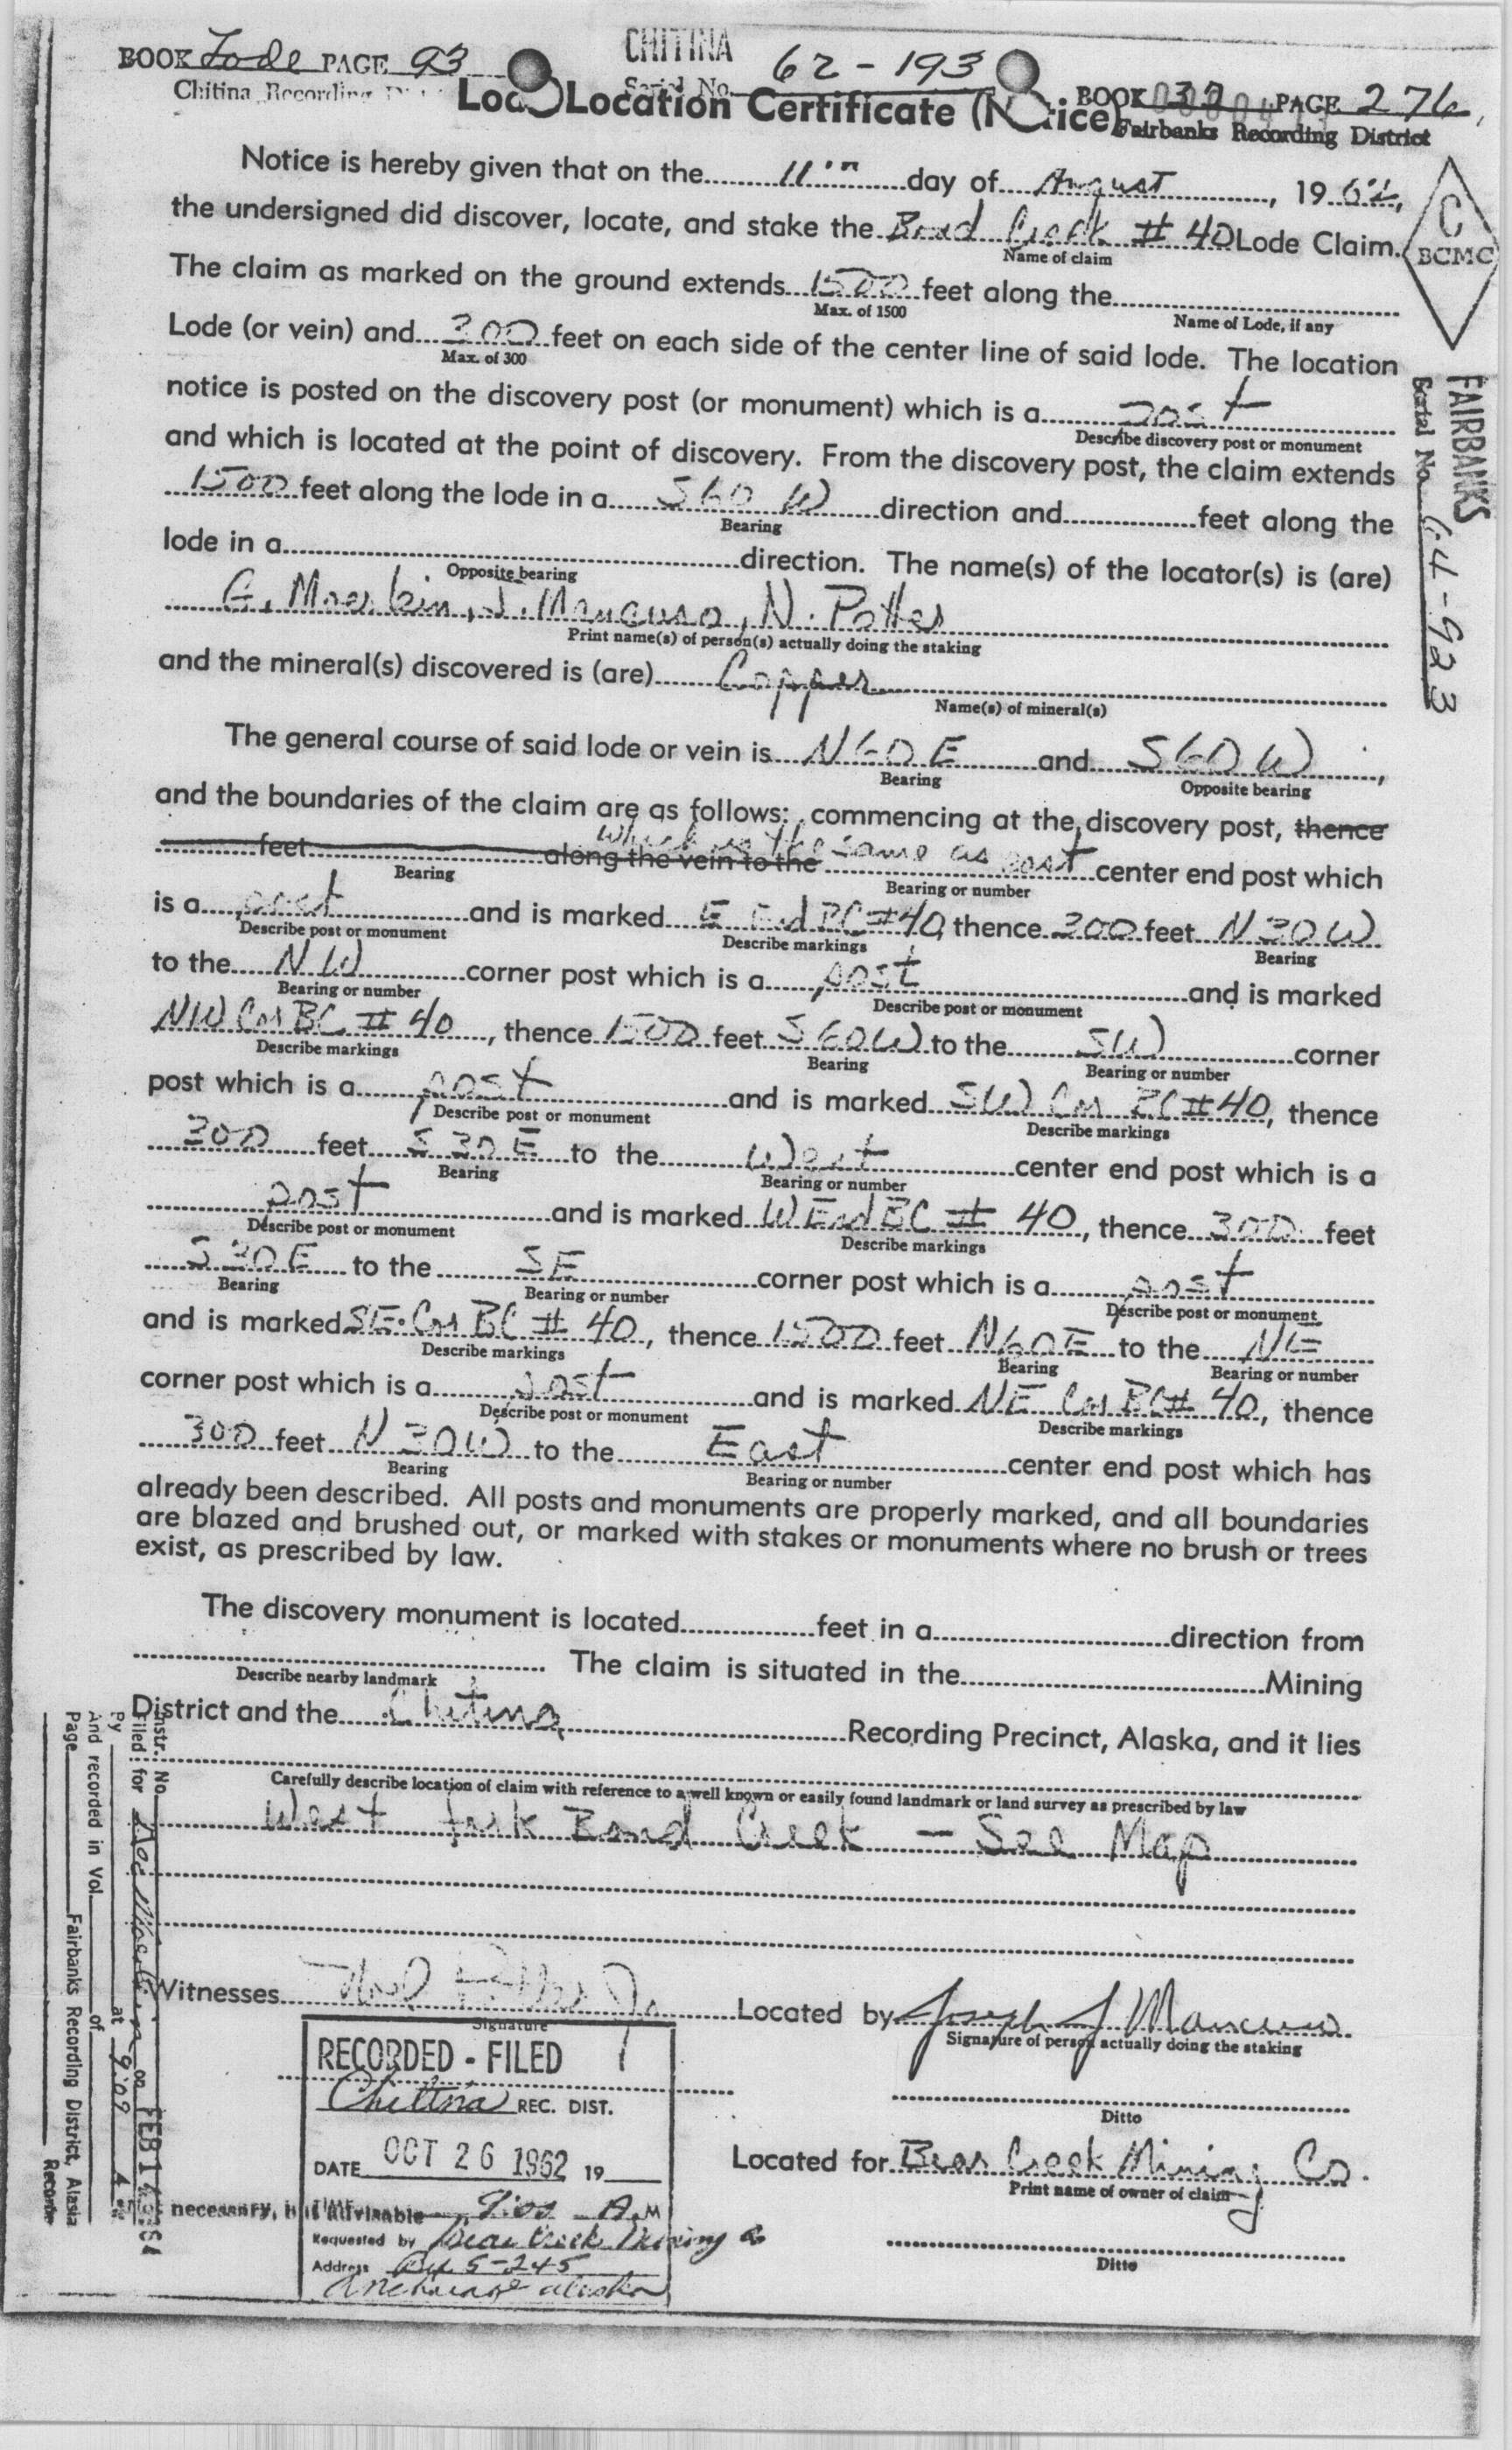 BOOK Lode PAGE 93
CHITINA
Serial No. 62-193
Chitina Recording
Location Certificate (Notice)
BOOK PAGE 276
Fairbanks Recording District
Notice is hereby given that on the 11th day of August, 1962,
the undersigned did discover, locate, and stake the Bond Creek # 40 Lode Claim.
Name of claim
C
BCMC
The claim as marked on the ground extends 1500 feet along the
Max. of 1500 Name of Lode, if any
Lode (or vein) and 300 feet on each side of the center line of said lode. The location
Max. of 300
notice is posted on the discovery post (or monument) which is a post
Describe discovery post or monument
and which is located at the point of discovery. From the discovery post, the claim extends
1500 feet along the lode in a S60 W direction and feet along the
Bearing
lode in a direction. The name(s) of the locator(s) is (are)
Opposite bearing
G. Moerlein, J. Mancuso, N. Potter
Print name(s) of person(s) actually doing the staking
and the mineral(s) discovered is (are) Copper
Name(s) of mineral(s)
FAIRBANKS
Serial No. 64-923
The general course of said lode or vein is N60E and S60W,
Bearing Opposite bearing
and the boundaries of the claim are as follows: commencing at the discovery post, thence
which is the same as east
feet along the vein to the center end post which
Bearing Bearing or number
is a post and is marked E End BC #40, thence 300 feet N30W
Describe post or monument Describe markings Bearing
to the NW corner post which is a post and is marked
Bearing or number Describe post or monument
NW Cor BC # 40, thence 1500 feet S60W to the SW corner
Describe markings Bearing Bearing or number
post which is a post and is marked SW Cor BC #40, thence
Describe post or monument Describe markings
300 feet S30E to the West center end post which is a
Bearing Bearing or number
post and is marked W End BC # 40, thence 300 feet
Describe post or monument Describe markings
S30E to the SE corner post which is a post
Bearing Bearing or number Describe post or monument
and is marked SE. Cor BC # 40, thence 1500 feet N60E to the NE
Describe markings Bearing Bearing or number
corner post which is a post and is marked NE Cor BC# 40, thence
Describe post or monument Describe markings
300 feet N30W to the East center end post which has
Bearing Bearing or number
already been described. All posts and monuments are properly marked, and all boundaries
are blazed and brushed out, or marked with stakes or monuments where no brush or trees
exist, as prescribed by law.
The discovery monument is located feet in a direction from
The claim is situated in the Mining
Describe nearby landmark
District and the Chitina Recording Precinct, Alaska, and it lies
Carefully describe location of claim with reference to a well known or easily found landmark or land survey as prescribed by law
West fork Bond Creek - See Map
Instr. No.
Filed for on FEB 1
By at 9:09 A
And recorded in Vol. of
Page Fairbanks Recording District, Alaska
Recorder
Witnesses Noel Potter Jr. Located by Joseph J Mancuso
Signature Signature of person actually doing the staking
Ditto
RECORDED - FILED
Chitina REC. DIST.
DATE OCT 26 1962 19
9:00 A.M
Requested by Bear Creek Mining Co
Address 5-245
Anchorage Alaska
necessary, advisable
Located for Bear Creek Mining Co.
Print name of owner of claim
Ditto